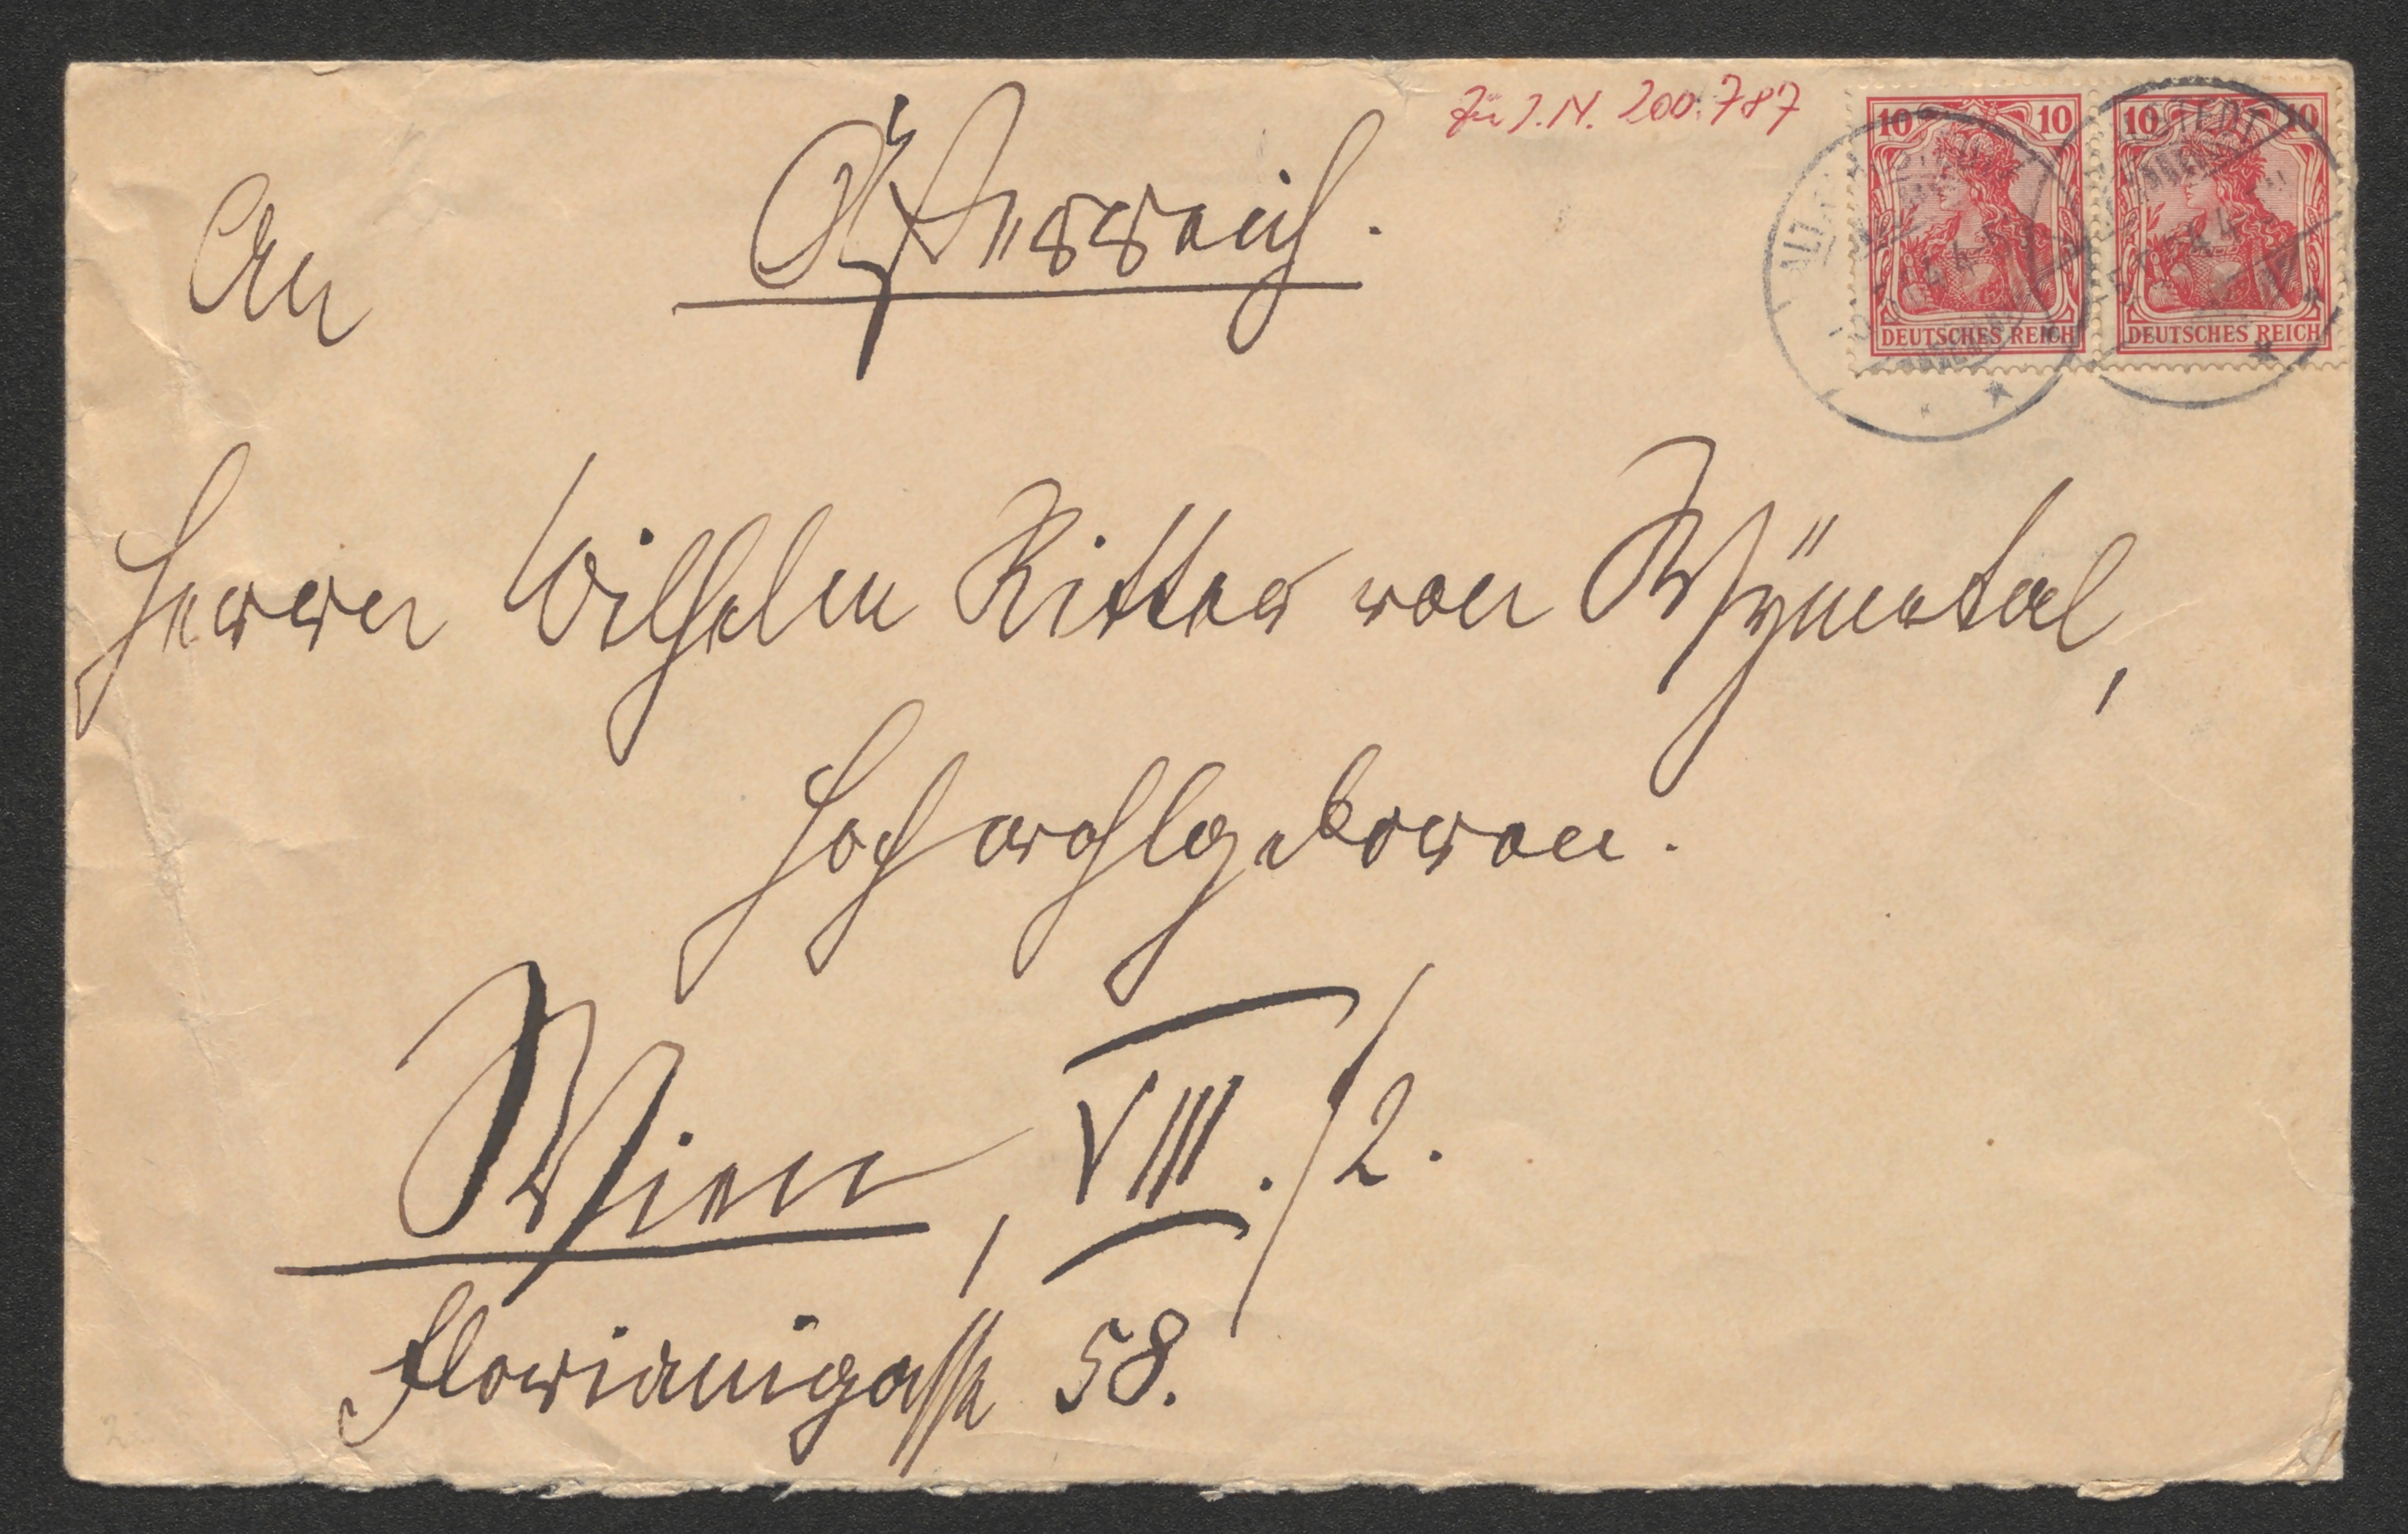 Zu I.N. 200.787
Österreich.
An
10 10 10 10
DEUTSCHES REICH DEUTSCHES REICH
Herrn Wilhelm Ritter von Wÿmetal,
Hochwohlgeboren.
Wien, VIII./2.
Florianigasse 58.